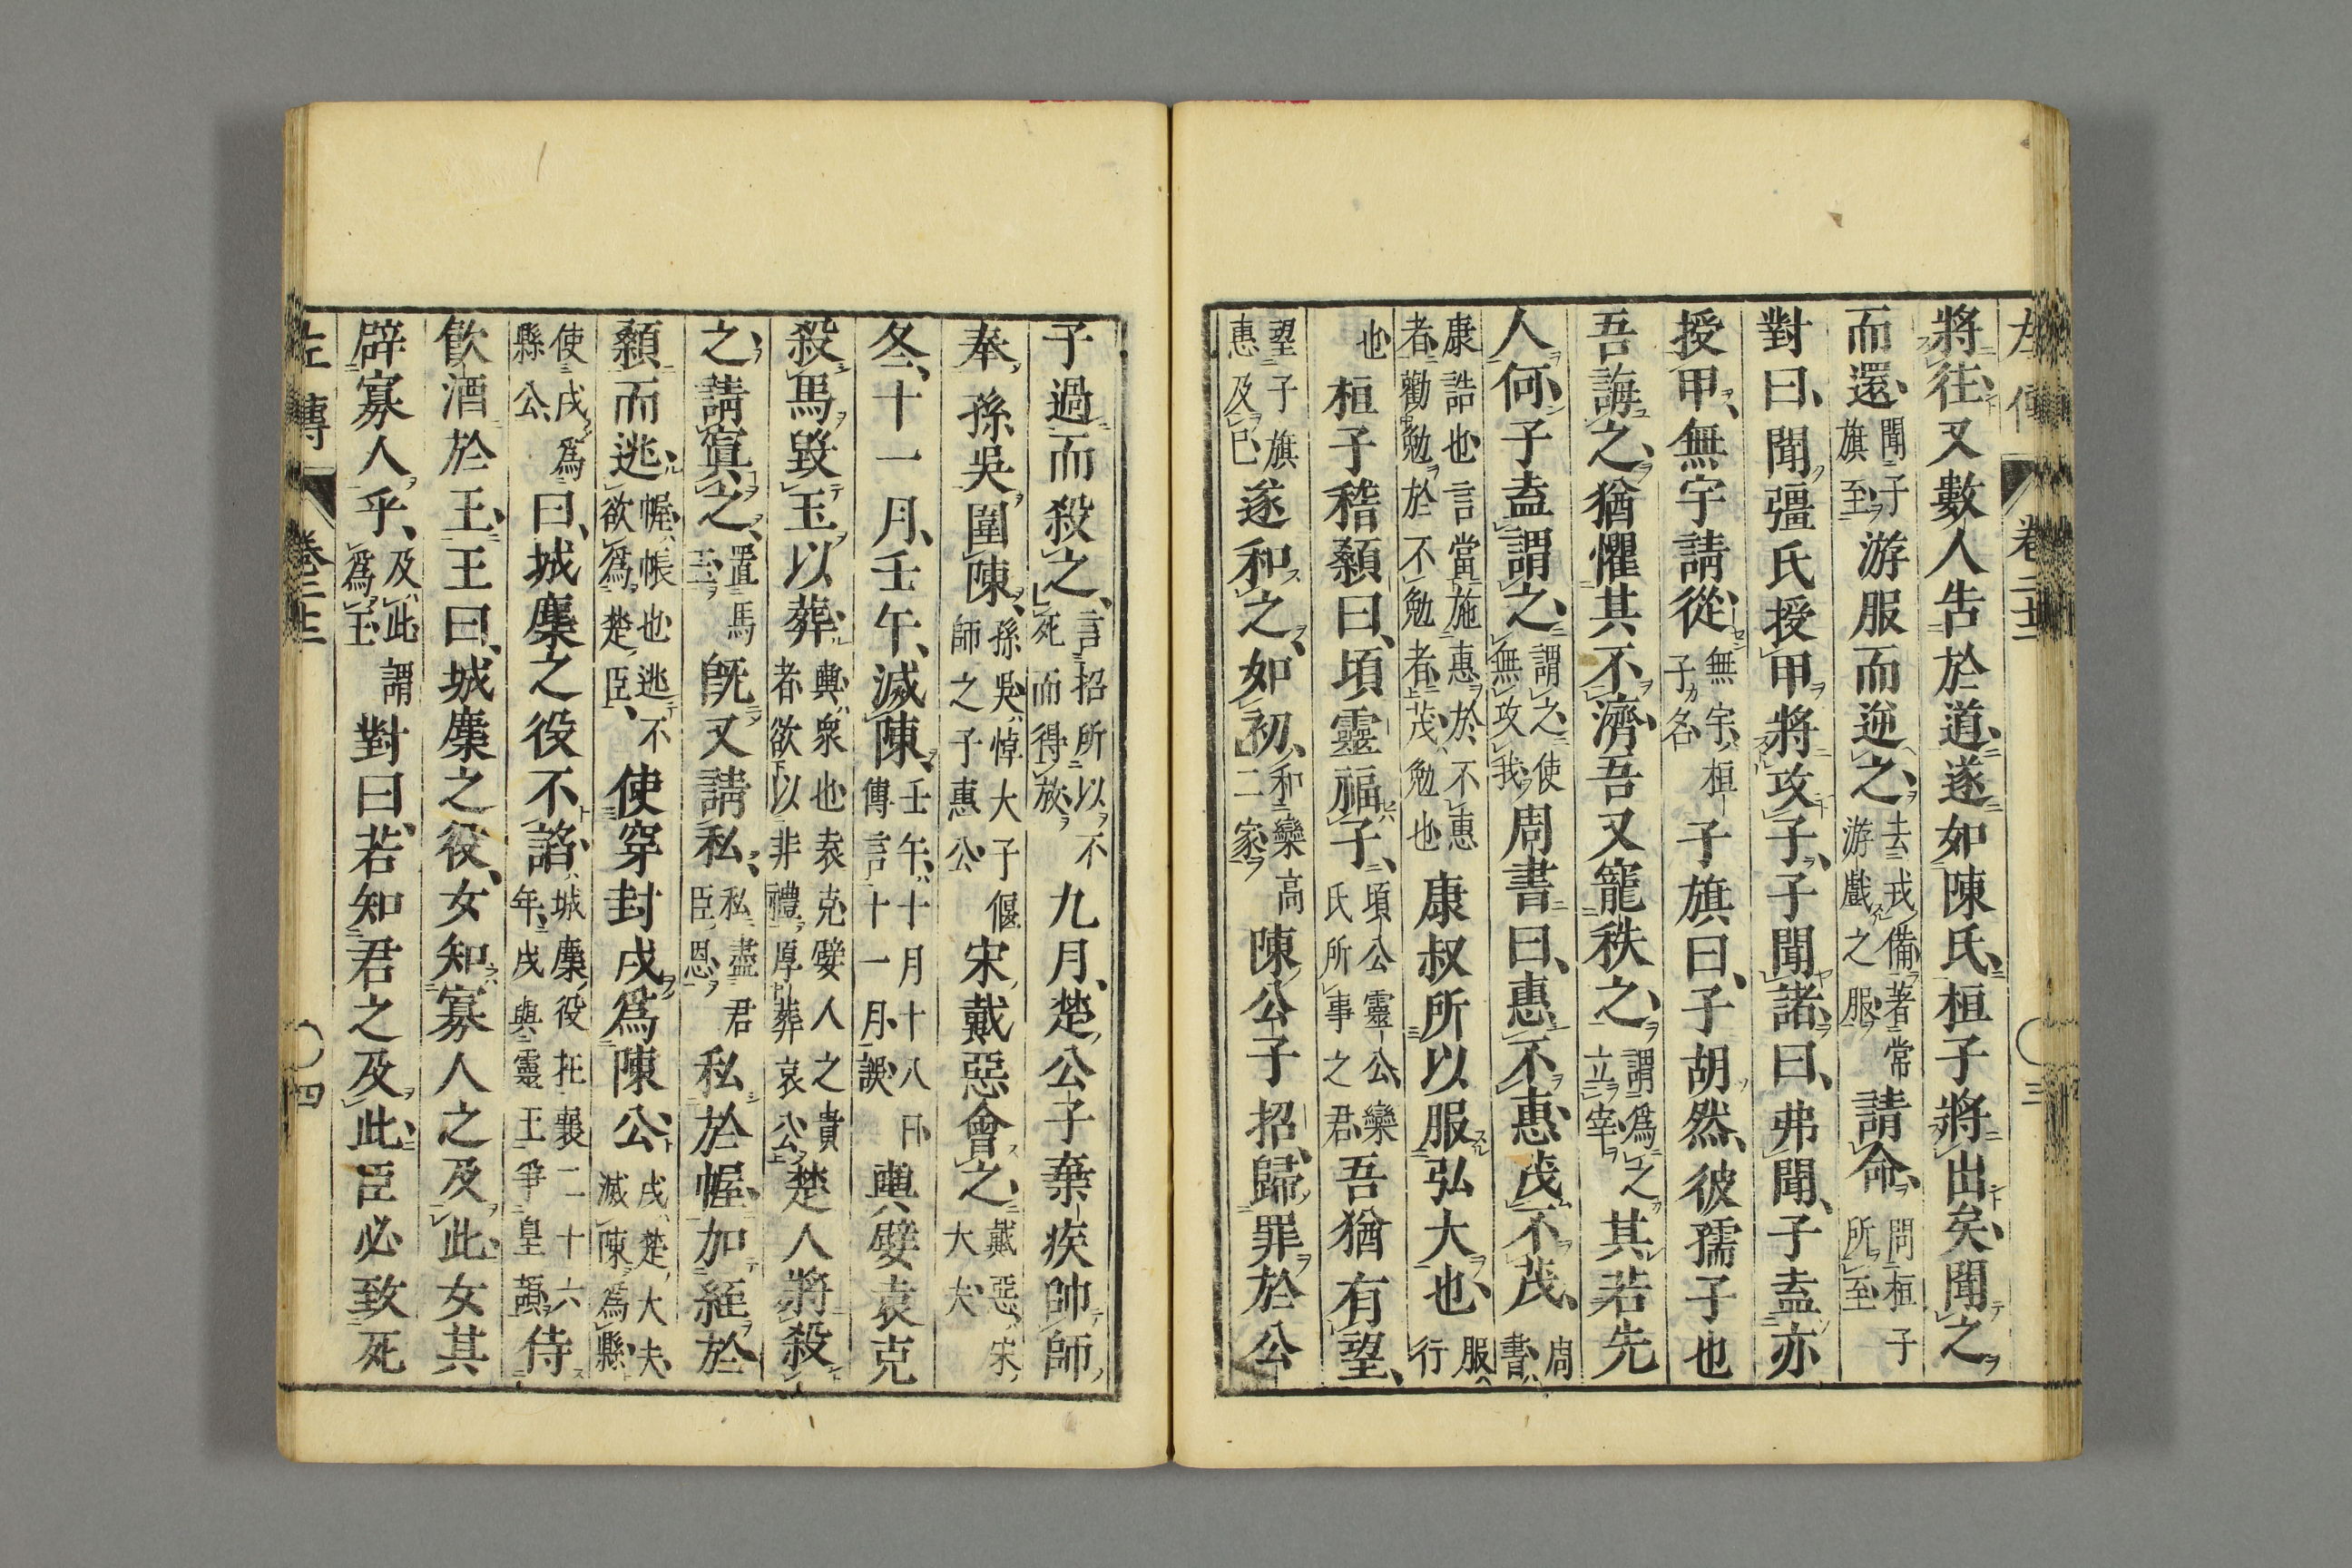 左傳 卷二十二 〇三
將往又數人告於道遂如陳氏桓子將出矣聞之
而還聞子旗至游服而逆之去戎備著常游戲之服請命問桓子所至
對曰聞彊氏授甲將攻子子聞諸曰弗聞子盍亦
授甲無宇請從無宇桓子名子旗曰子胡然彼孺子也
吾誨之猶懼其不濟吾又寵秩之謂爲之立宰其若先
人何子盍謂之謂之使無攻我周書曰惠不惠茂不茂周書
康誥也言當施惠於不惠者勸勉於不勉者茂勉也康叔所以服弘大也服行
也桓子稽顙曰頃靈福子頃公靈公欒氏所事之君吾猶有望
望子旗惠及已遂和之如初和欒高二家陳公子招歸罪於公
子過而殺之言招所以不死而得放九月楚公子棄疾帥師
奉孫吳圍陳孫吳悼大子偃師之子惠公宋戴惡會之戴惡宋大夫
冬十一月壬午滅陳壬午十月十八日傳言十一月誤輿嬖袁克
殺馬毀玉以葬輿眾也袁克嬖人之貴者欲以非禮厚葬哀公楚人將殺
之請寘之置馬玉既又請私私盡君臣恩私於幄加絰於
顙而逃幄帳也逃不欲爲楚臣使穿封戌爲陳公戌楚大夫滅陳爲縣
使戌爲縣公曰城麇之役不諂城麇役在襄二十六年戌與靈王爭皇頡侍
飮酒於王王曰城麇之役女知寡人之及此女其
辟寡人乎及此謂爲王對曰若知君之及此臣必致死
左傳 卷二十二 〇四